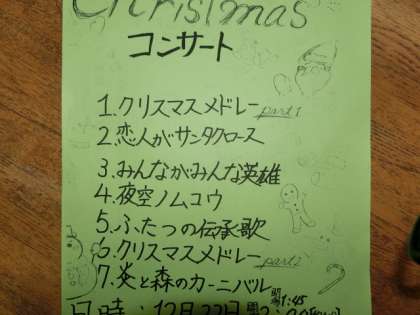 Christmas
コンサート
1.クリスマスメドレーpart1
2.恋人がサンタクロース
3.みんながみんな英雄
4.夜空ノムコウ
5.ふたつの伝承歌
6.クリスマスメドレーpart2
7.炎と森のカーニバル
日時:12月22日 開場1:45